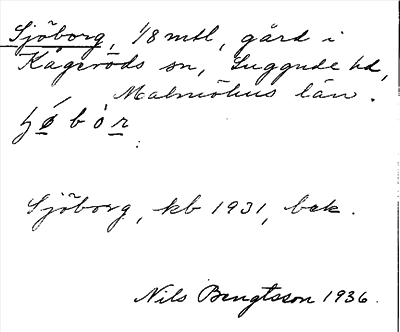 Sjöborg, 1/8 mtl, gård i
Kågeröds sn, Luggude hd,
Malmöhus län.
Sjöborg, kb 1931, bek.
Nils Bengtsson 1936.